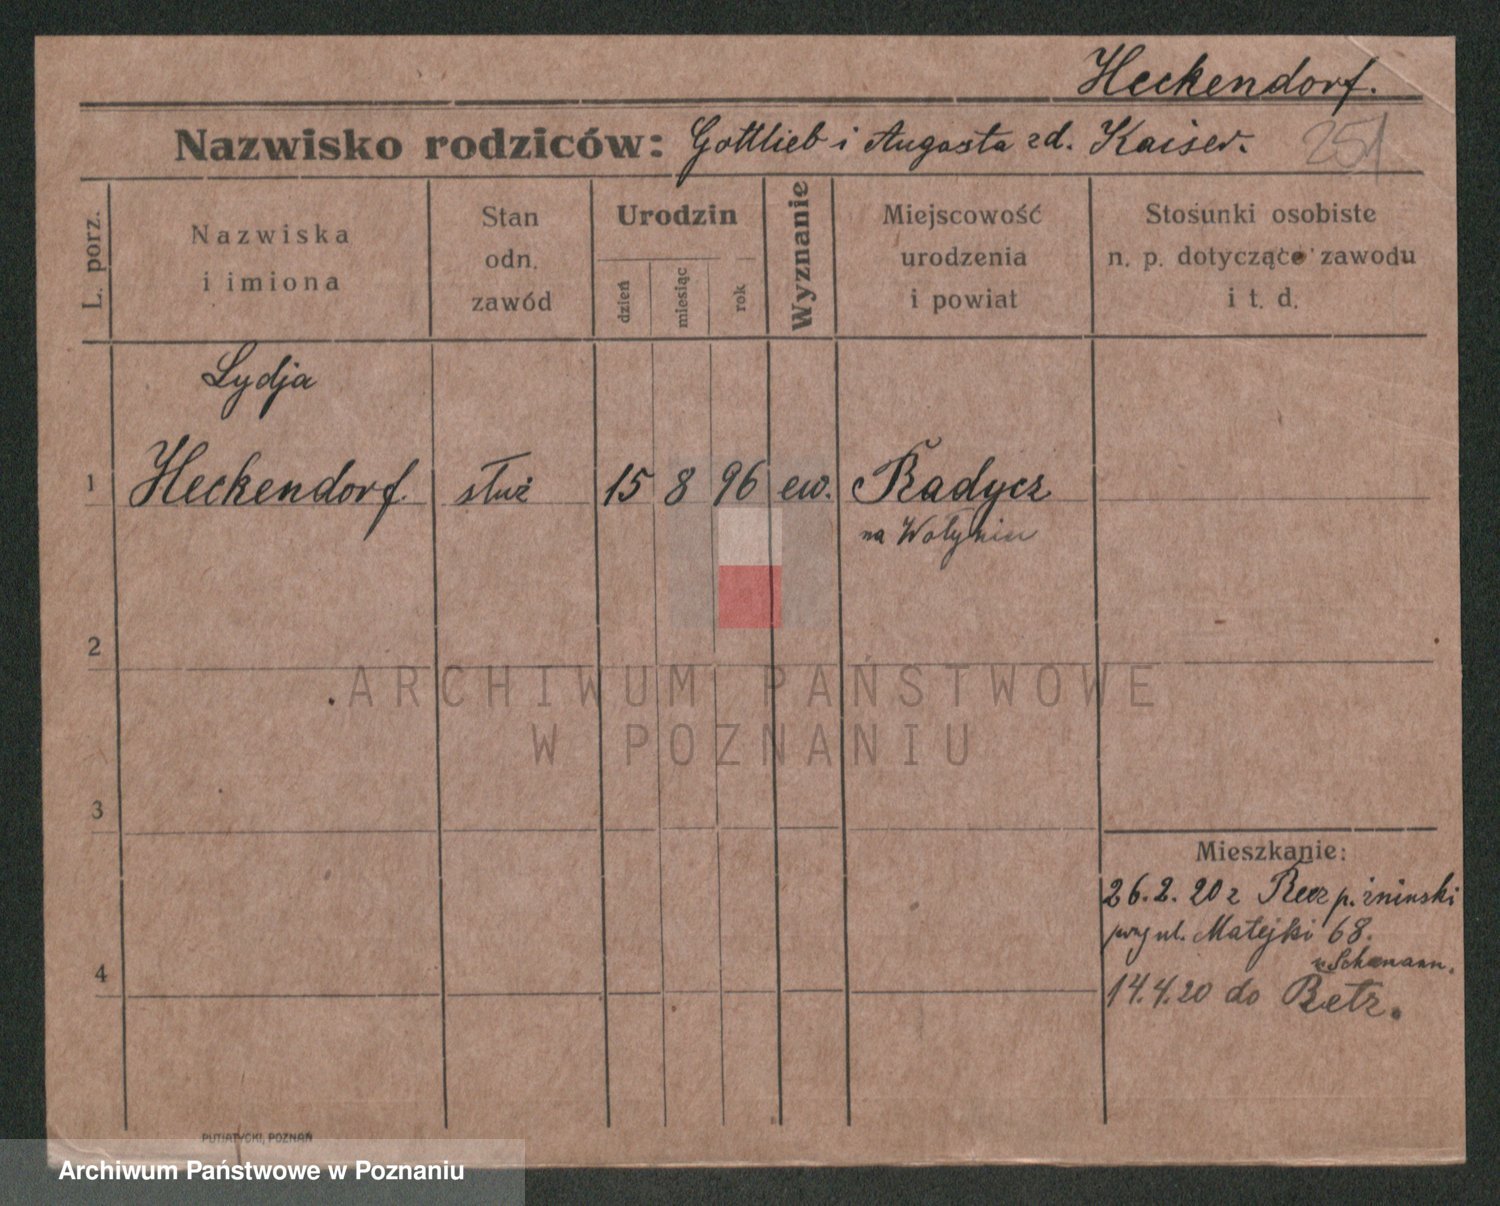 Heckendorf.
Nazwisko rodziców: Gottlieb i Augusta zd. Kaiser.
251
L. porz.
Nazwiska
i imiona
Stan
odn.
zawód
Urodzin
dzień
miesiąc
rok
Wyznanie
Miejscowość
urodzenia
i powiat
Stosunki osobiste
n. p. dotyczące zawodu
i t. d.
Lydja
1 Heckendorf. służ 15 8 96 ew. Radycz
na Wołyniu
2
3
4
Mieszkanie:
26.2.20 z p. żniński
ul. Matejki 68.
14.4.20 do
PUTIATYCKI, POZNAŃ
ARCHIWUM PAŃSTWOWE
W POZNANIU
Archiwum Państwowe w Poznaniu